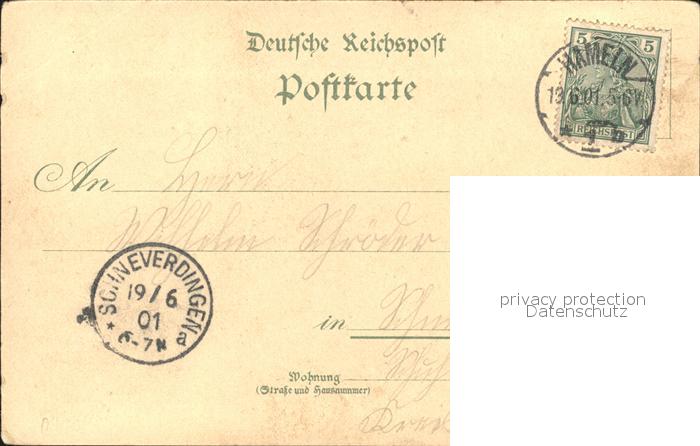 Deutsche Reichspost
Postkarte
5 5
REICHSPOST
HAMELN
19.6.01.5-6V.
1
An Herrn
Wilhelm Schröder
in
Wohnung
(Straße und Hausnummer)
SCHNEVERDINGEN
19/6
01
6-7N
privacy protection
Datenschutz